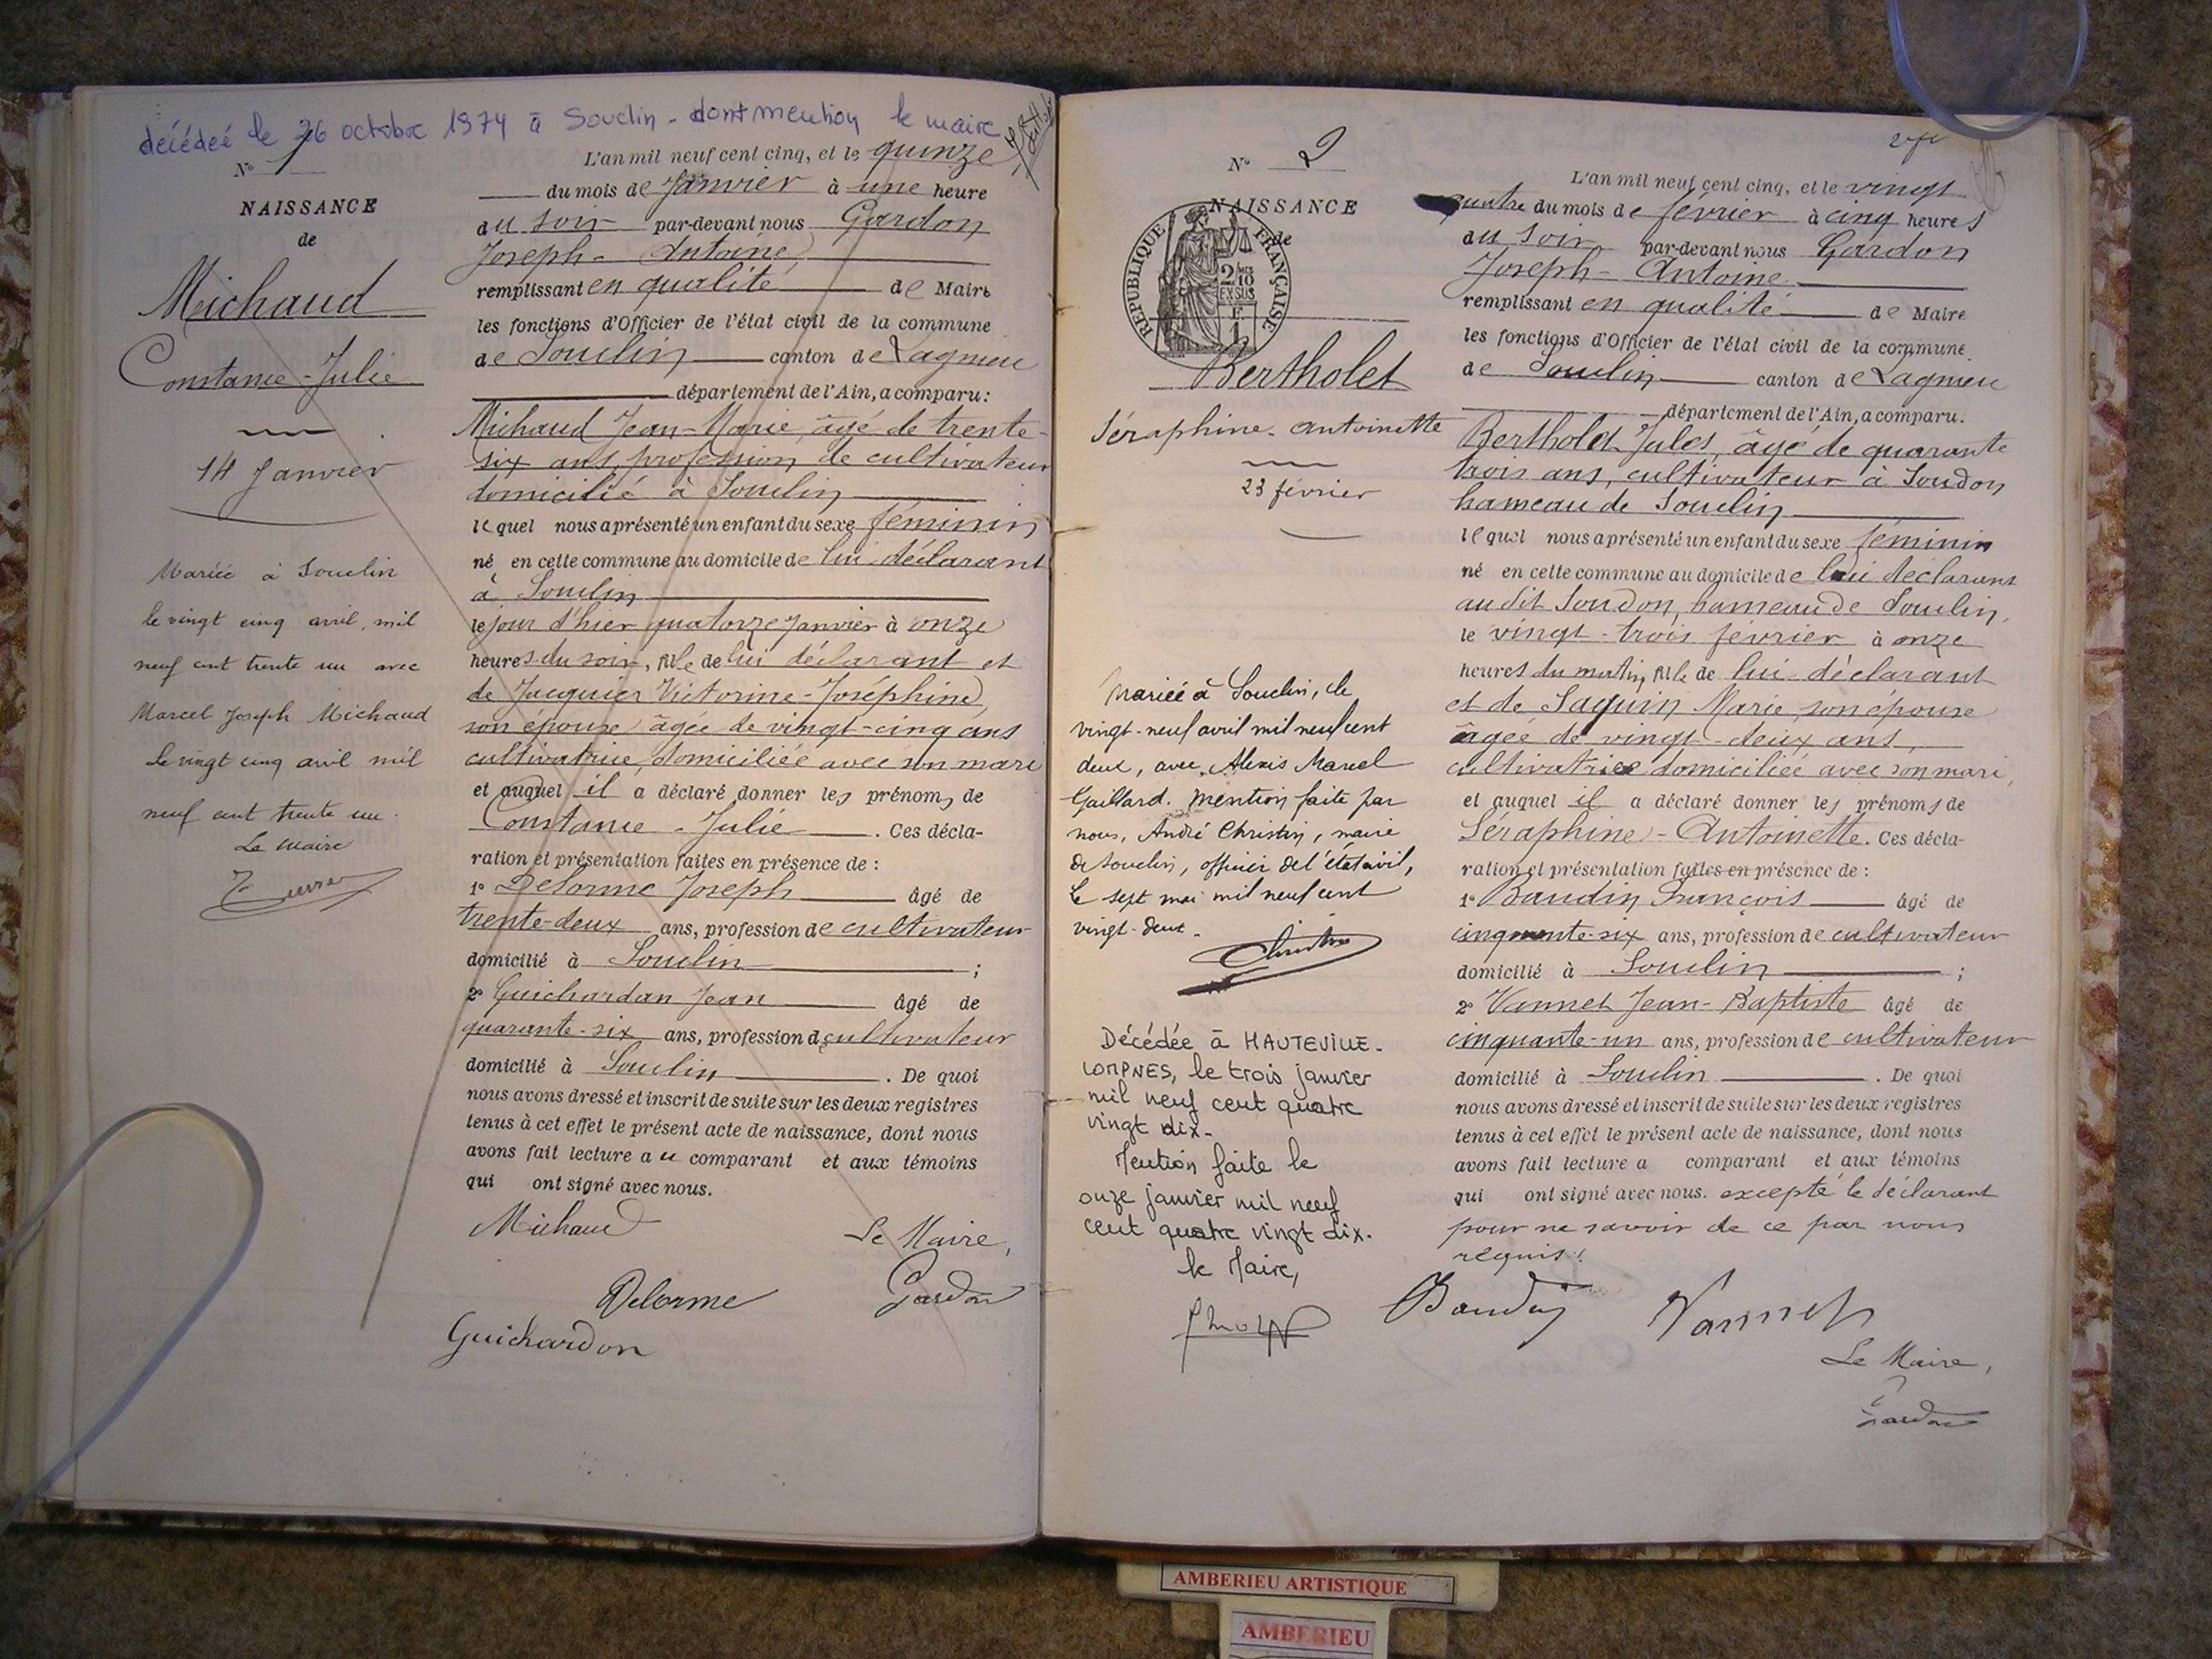 décédée le 26 octobre 1974 à Souclin - dont mention le maire
N° 1
NAISSANCE
de
Michaud
Constance-Julie
14 Janvier
Mariée à Souclin
le vingt cinq avril mil
neuf cent trente un avec
Marcel Joseph Michaud
Le vingt cinq avril mil
neuf cent trente un.
Le Maire
L'an mil neuf cent cinq, et le quinze
du mois de Janvier à une heure
du soir par-devant nous Gardon
Joseph-Antoine
remplissant en qualité de Maire
les fonctions d'Officier de l'état civil de la commune
de Souclin canton de Lagnieu
département de l'Ain, a comparu:
Michaud Jean-Marie, âgé de trente-
six ans, profession de cultivateur
domicilié à Souclin
lequel nous a présenté un enfant du sexe féminin
né en cette commune au domicile de lui déclarant
à Souclin
le jour d'hier quatorze Janvier à onze
heures du soir, fille de lui déclarant et
de Jacquier Victorine-Joséphine,
son épouse âgée de vingt-cinq ans
cultivatrice, domiciliée avec son mari
et auquel il a déclaré donner les prénoms de
Constance-Julie. Ces décla-
ration et présentation faites en présence de :
1° Delorme Joseph âgé de
trente-deux ans, profession de cultivateur
domicilié à Souclin ;
2° Guichardon Jean âgé de
quarante-six ans, profession de cultivateur
domicilié à Souclin. De quoi
nous avons dressé et inscrit de suite sur les deux registres
tenus à cet effet le présent acte de naissance, dont nous
avons fait lecture au comparant et aux témoins
qui ont signé avec nous.
Michaud
Le Maire,
Delorme
Gardon
Guichardon
N° 2
NAISSANCE
de
REPUBLIQUE FRANÇAISE
2/10 EN SUS
Bertholet
Séraphine-Antoinette
23 février
Mariée à Souclin, le
vingt-neuf avril mil neuf cent
deux, avec Alexis Marcel
Gaillard. Mention faite par
nous, André Christin, maire
de Souclin, officier de l'état civil,
le sept mai mil neuf cent
vingt-deux.
Christin
Décédée à HAUTEVILLE-
LOMPNES, le trois janvier
mil neuf cent quatre
vingt dix-
Mention faite le
onze janvier mil neuf
cent quatre vingt dix.
le Maire,
L'an mil neuf cent cinq, et le vingt
quatre du mois de février à cinq heures
du soir par-devant nous Gardon
Joseph-Antoine
remplissant en qualité de Maire
les fonctions d'Officier de l'état civil de la commune
de Souclin canton de Lagnieu
département de l'Ain, a comparu.
Bertholet Jules, âgé de quarante
trois ans, cultivateur à Soudon
hameau de Souclin
lequel nous a présenté un enfant du sexe féminin
né en cette commune au domicile de lui déclarant
audit Soudon, hameau de Souclin,
le vingt-trois février à onze
heures du matin, fille de lui déclarant
et de Jaquin Marie, son épouse
âgée de vingt-deux ans,
cultivatrice domiciliée avec son mari,
et auquel il a déclaré donner les prénoms de
Séraphine-Antoinette. Ces décla-
ration et présentation faites en présence de :
1° Baudin François âgé de
cinquante-six ans, profession de cultivateur
domicilié à Souclin ;
2° Vannet Jean-Baptiste âgé de
cinquante-un ans, profession de cultivateur
domicilié à Souclin. De quoi
nous avons dressé et inscrit de suite sur les deux registres
tenus à cet effet le présent acte de naissance, dont nous
avons fait lecture a comparant et aux témoins
qui ont signé avec nous. excepté le déclarant
pour ne savoir de ce par nous
requis.
Baudin
Vannet
Le Maire,
Gardon
AMBERIEU ARTISTIQUE
AMBERIEU